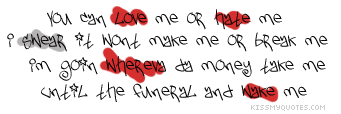 you can love me or hate me
i swear it wont make me or break me
im goin whereva da money take me
until the funeral and wake me
KISSMYQUOTES.COM